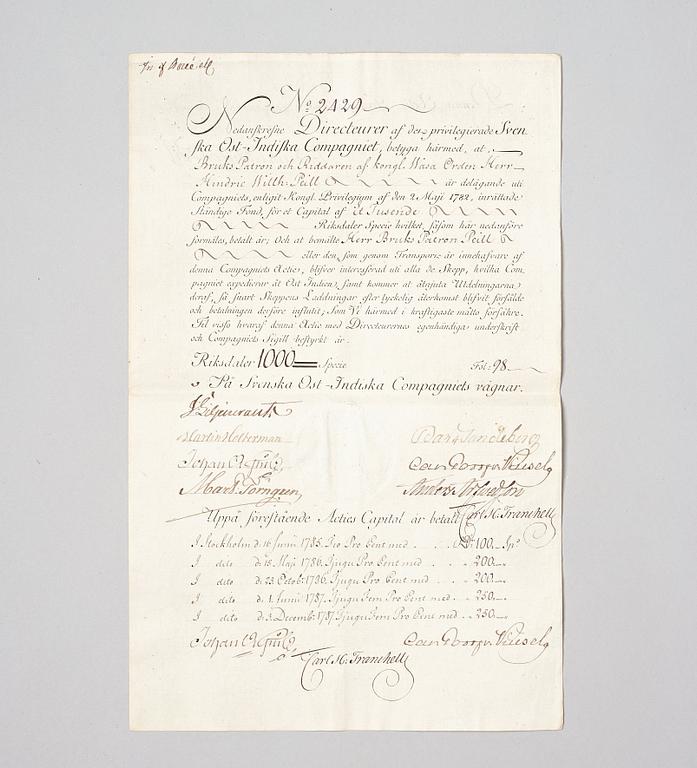 No 2429
Nedanskrefne Directeurer af den privilegierade Sven
ska Ost-Indiska Compagniet, betyga härmed, at
Bruks Patron och Riddaren af kongl. Wasa Orden Herr
Hindric Wilh: Peill är delägande uti
Compagniets, enligit Kongl. Privilegium af den 2 Maji 1782, inrättade
Ständige Fond, för et Capital af et Tusende
Riksdaler Specie hvilket, såsom här nedanföre
förmäles, betalt är; Och at bemälte Herr Bruks Patron Peill
eller den, som genom Transport är innehafvare af
denna Compagniets Actie, blifver interesserad uti alla de Skepp, hvilka Com
pagniet expedierar åt Ost Indien, samt kommer at åtnjuta Utdelningarna
deraf, så snart Skeppens Laddningar efter lyckelig återkomst blifvit försålde
och betalningen derföre influtit; Som Vi härmed i kraftigaste måtto försäkre.
Til visso hvaraf denna Actie med Directeurernes egenhändiga underskrift
och Compagniets Sigill bestyrkt är.
Riksdaler 1000 Specie Fol: 98
På Svenska Ost-Indiska Compagniets vägnar.
J Liljencrantz
Martin Holterman
Mart: Törngren
Carl H: Tranchell
Uppå förestående Acties Capital är betalt
I Stockholm d: 16 Junii 1785. Tio Pro Cent med 100
I dito d: 15 Maji 1786. Tjugu Pro Cent med 200
I dito d: 23 Octob: 1786. Tjugu Pro Cent med 200
I dito d: 1 Junii 1787. Tjugu Fem Pro Cent med 250
I dito d: 3 Decemb: 1787. Tjugu Fem Pro Cent med 250
Carl H: Tranchell